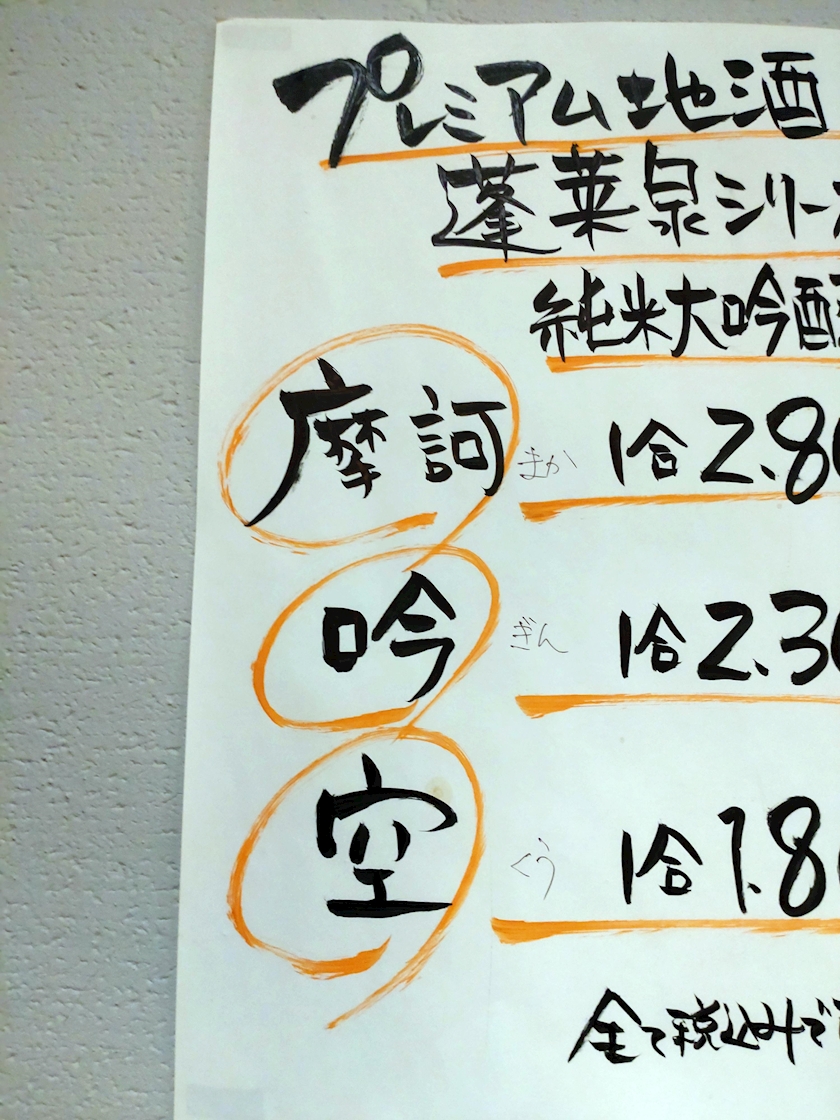 プレミアム地酒
蓬莱泉シリーズ
純米大吟醸
摩訶 まか 1合 2.80
吟 ぎん 1合 2.30
空 くう 1合 1.80
全て税込みで